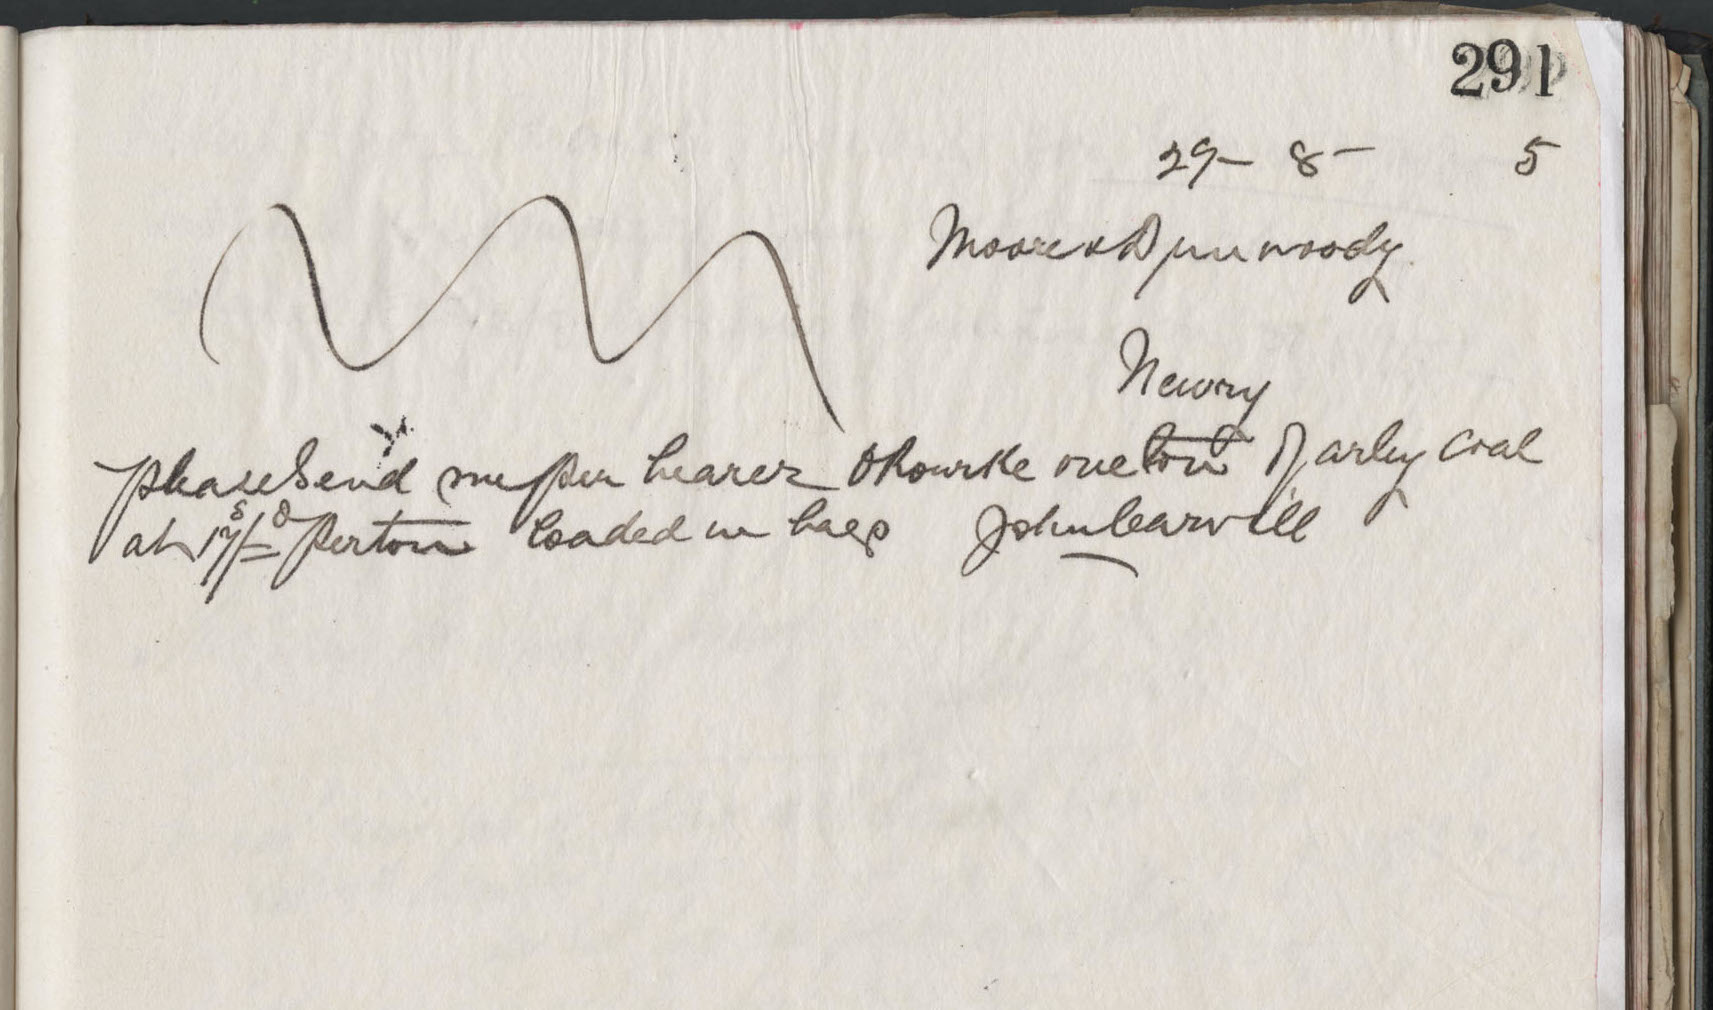 291
29- 8- 5
Moore & Dunwoody
Newry
please Send me per bearer ORourke one ton of arley coal
at 17s/- per ton loaded in bags John Carvill